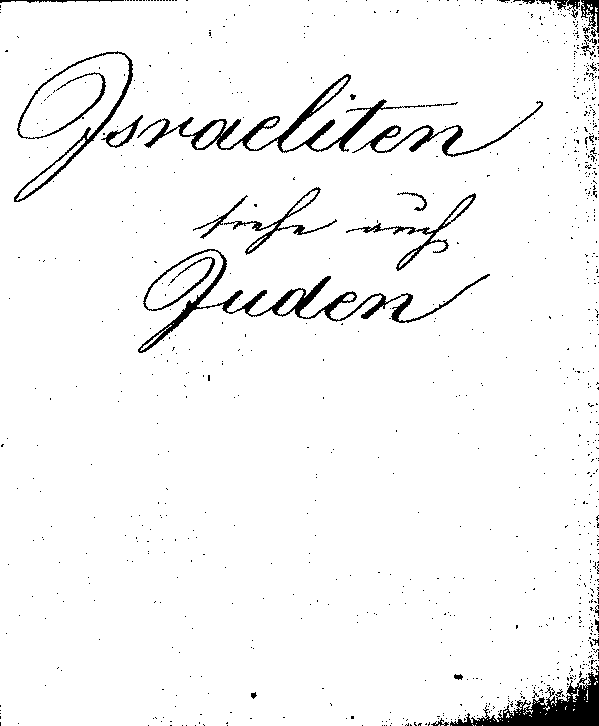 Israeliten
siehe auch
Juden